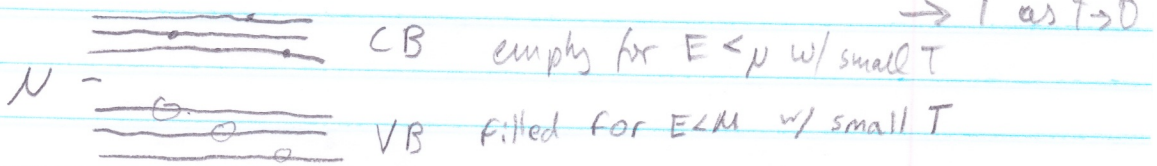 → 1 as T→0
CB empty for E<μ w/ small T
μ
VB filled for E<μ w/ small T